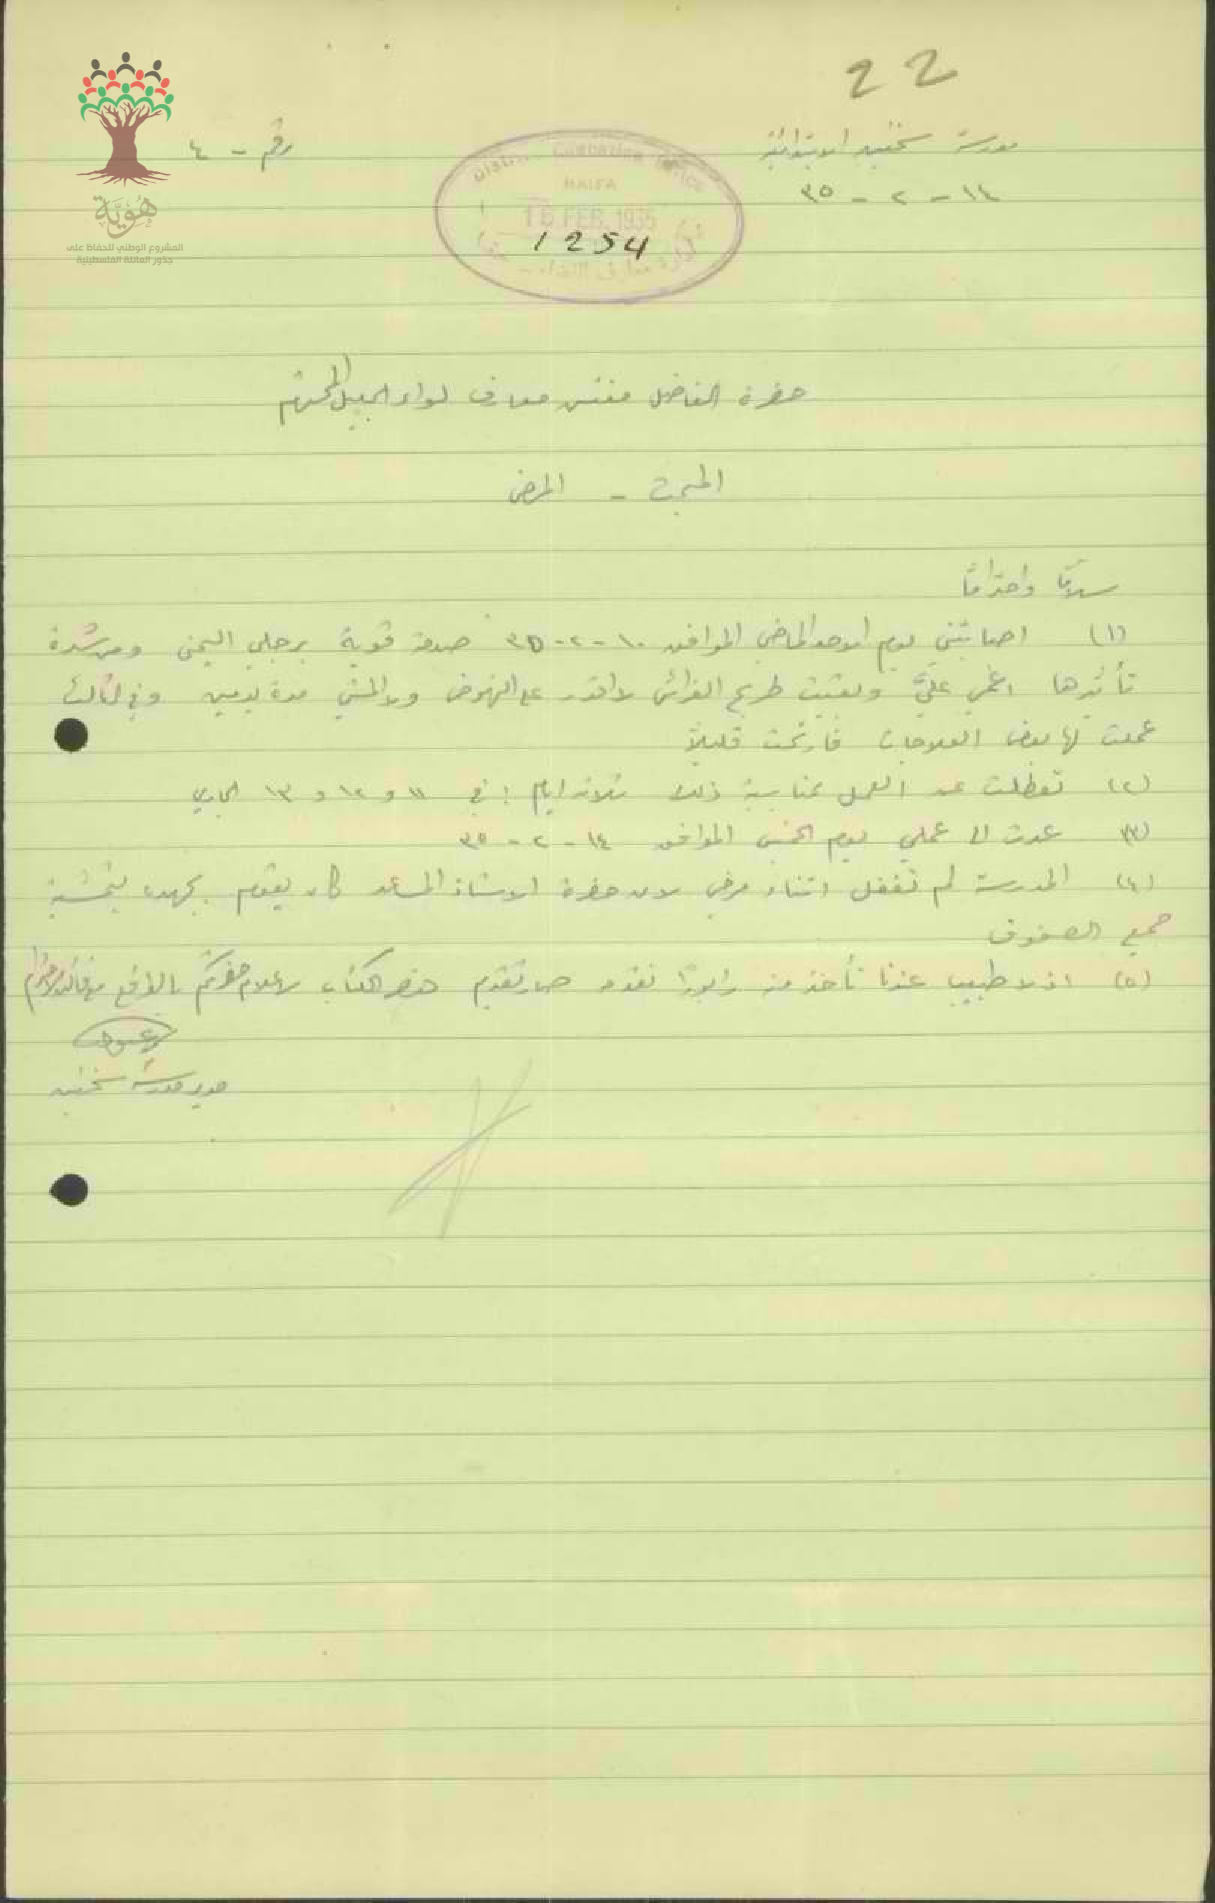 22
مدرسة سخنين الابتدائية
رقم - ٤
١٤ - ٢ - ٣٥
District Education Office
HAIFA
16 FEB. 1935
1254
هُوِيَّة
المشروع الوطني للحفاظ على
جذور العائلة الفلسطينية
حضرة الفاضل مفتش معارف لواء الجليل المحترم
المبحث - المرض
سلامًا واحترامًا
(١) اصابتني يوم الاحد الماضي الموافق ١٠ - ٢ - ٣٥ صدمة قوية برجلي اليمنى ومن شدة
تأثيرها اغمي عليَّ وبقيت طريح الفراش لا اقدر على النهوض ولا المشي مدة يومين وفي الثالث
عملت لها بعض العلاجات فارتحت قليلاً
(٢) تعطلت عن العمل بمناسبة ذلك ثلاثة ايام : في ١١ و ١٢ و ١٣ الجاري
(٣) عدت الى عملي يوم الخميس الموافق ١٤ - ٢ - ٣٥
(٤) المدرسة لم تقفل اثناء مرضي لان حضرة الاستاذ المساعد كان يقوم بجهده بتمشية
جميع الصفوف
(٥) اذ لا طبيب عندنا نأخذ منه رابورًا نقدمه صار تقديم هذا الكتاب لاعلام حضرتكم بالواقع مع فائق الاحترام
مدير مدرسة سخنين